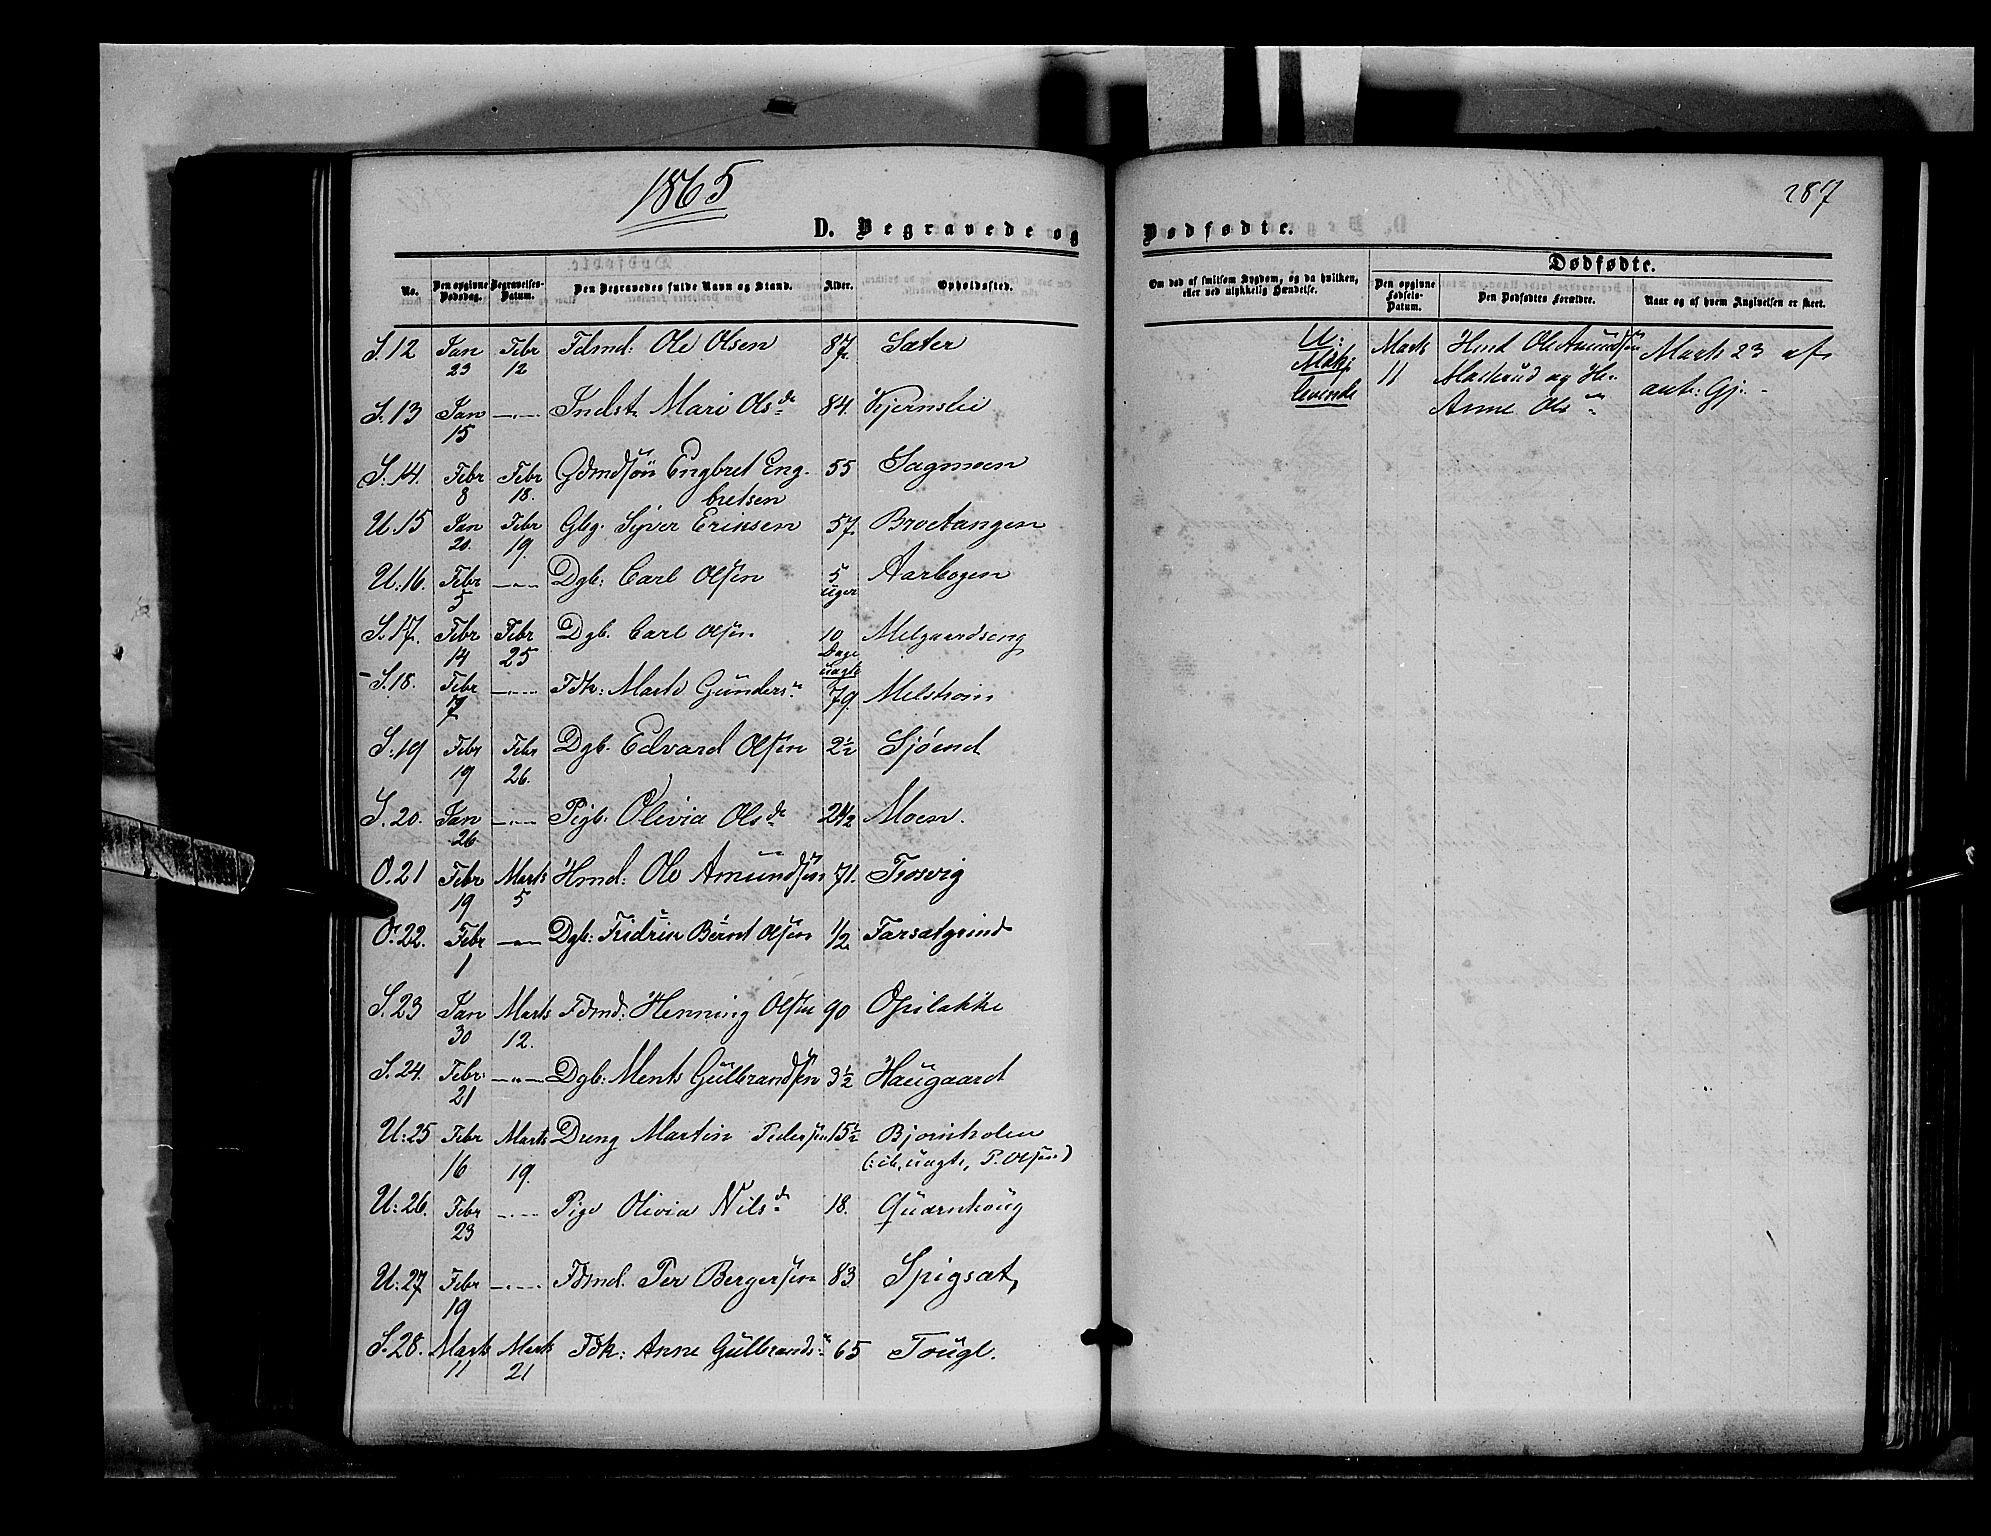 1865
287
D. Begravede og Dødfødte.
Dødfødte.
No. Den opgivne Dødsdag. Begravelses-Datum. Den Begravedes fulde Navn og Stand. Alder. Opholdssted.
Om død af smitsom Sygdom, og da hvilken, eller ved ulykkelig Hændelse. Den opgivne Fødsels-Datum. Den Dødfødtes Forældre. Naar og af hvem Angivelsen er skeet.
S. 12 Jan 23 Febr 12 Fdmd: Ole Olsen 87 Sæter
S. 13 Jan 15 —"— Indst. Mari Olsdr 84. Kjernslie
S. 14. Febr 8 Febr 18. Gdmdsøn Engbret Eng-
bretsen 55 Sagmoen
U. 15 Jan 20. Febr 19. Gbg. Syver Eriksen 57. Broetangen
U. 16. Febr 5 —"— Dgb: Carl Olsen 5 Uger Aarbogen
S. 17. Febr 14 Febr 25 Dgb. Carl Olsen 10 Dage Melgaardseng
uægte
S. 18. Febr 7 —"— Fdk: Marte Gunders. 79. Melstrøm
S. 19 Febr 19 Febr 26. Dgb. Edvard Olsen 2½ Sjøend
S. 20. Jan 26 —"— Pigb. Olivia Olsdr 2½ Moen.
O. 21 Febr 19 Marts 5 Hmd: Ole Amundsen 71. Trosvig
O. 22. Febr 1 —"— Dgb: Fredrik Bernt Olsen ½ Farsætgrind
S. 23 Jan 30 Marts 12. Fdmd: Henning Olsen 90 Opilakke
S. 24. Febr. 21 —"— Dgb: Ments Gulbrandsen 3½ Haugaard
U: 25 Febr 16 Marts 19. Dreng Martin Pedersen 15½ Bjørnholen
(: ib, uægte, P. Olsen)
U: 26. Febr 23 —"— Pige Olivia Nilsdr 18. Quærnhoug
U: 27 Febr 19 —"— Fdmd. Per Bergersen 83 Spigsæt
S. 28. Marts 11 Marts 21 Fdk: Anne Gulbrands. 65 Tougl.
U: Marts Hmd Ole Amundsen Marts 23 af
11 Mastrud og H:
levende Anne Ols. ant: Gj: -